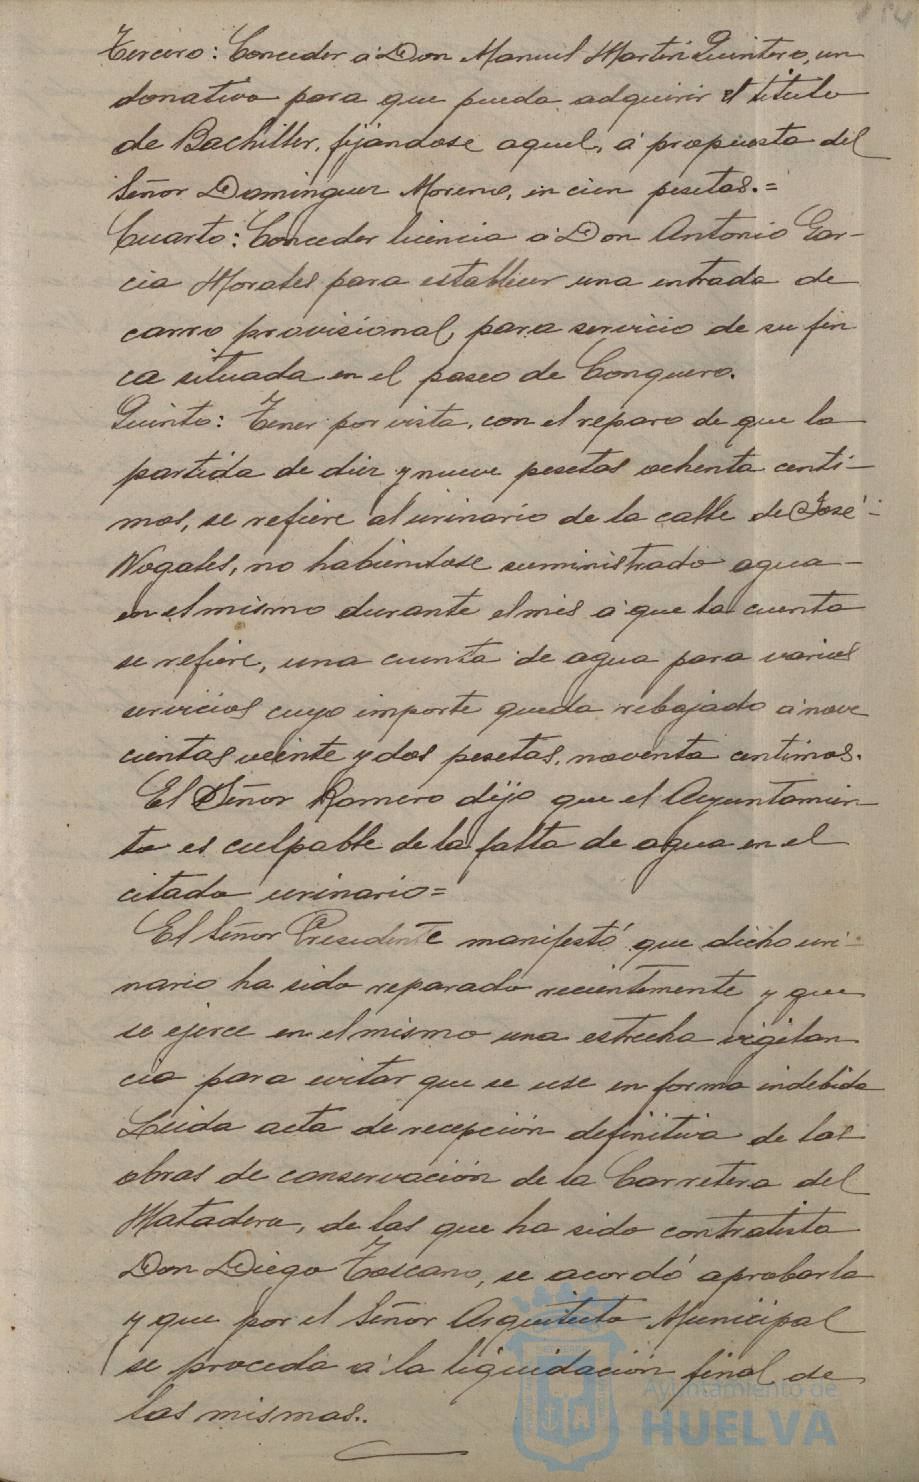 Tercero: Conceder á Don Manuel Martin Quintero, un
donativo para que pueda adquirir el titulo
de Bachiller, fijándose aquel, á propuesta del
Señor Dominguez Moreno, en cien pesetas.=
Cuarto: Conceder licencia á Don Antonio Gar-
cia Morales para establecer una entrada de
carro provisional, para servicio de su fin
ca situada en el paseo de Conquero.
Quinto: Tener por vista, con el reparo de que la
partida de diez y nueve pesetas ochenta centi-
mos, se refiere al urinario de la calle de José
Nogales, no habiendose suministrado agua
en el mismo durante el mes á que la cuenta
se refiere, una cuenta de agua para varios
servicios cuyo importe queda rebajado á nove
cientas veinte y dos pesetas, noventa centimos.
El Señor Romero dijo que el Ayuntamien-
to es culpable de la falta de agua en el
citado urinario=
El Señor Presidente manifestó que dicho uri-
nario ha sido reparado recientemente y que
se ejerce en el mismo una estrecha vigilan
cia para evitar que se use en forma indebida
Leida acta de recepción definitiva de las
obras de conservación de la Carretera del
Matadero, de las que ha sido contratista
Don Diego Toscano, se acordó aprobarla
y que por el Señor Arquitecto Municipal
se proceda á la liquidación final de
las mismas..
Ayuntamiento de
HUELVA